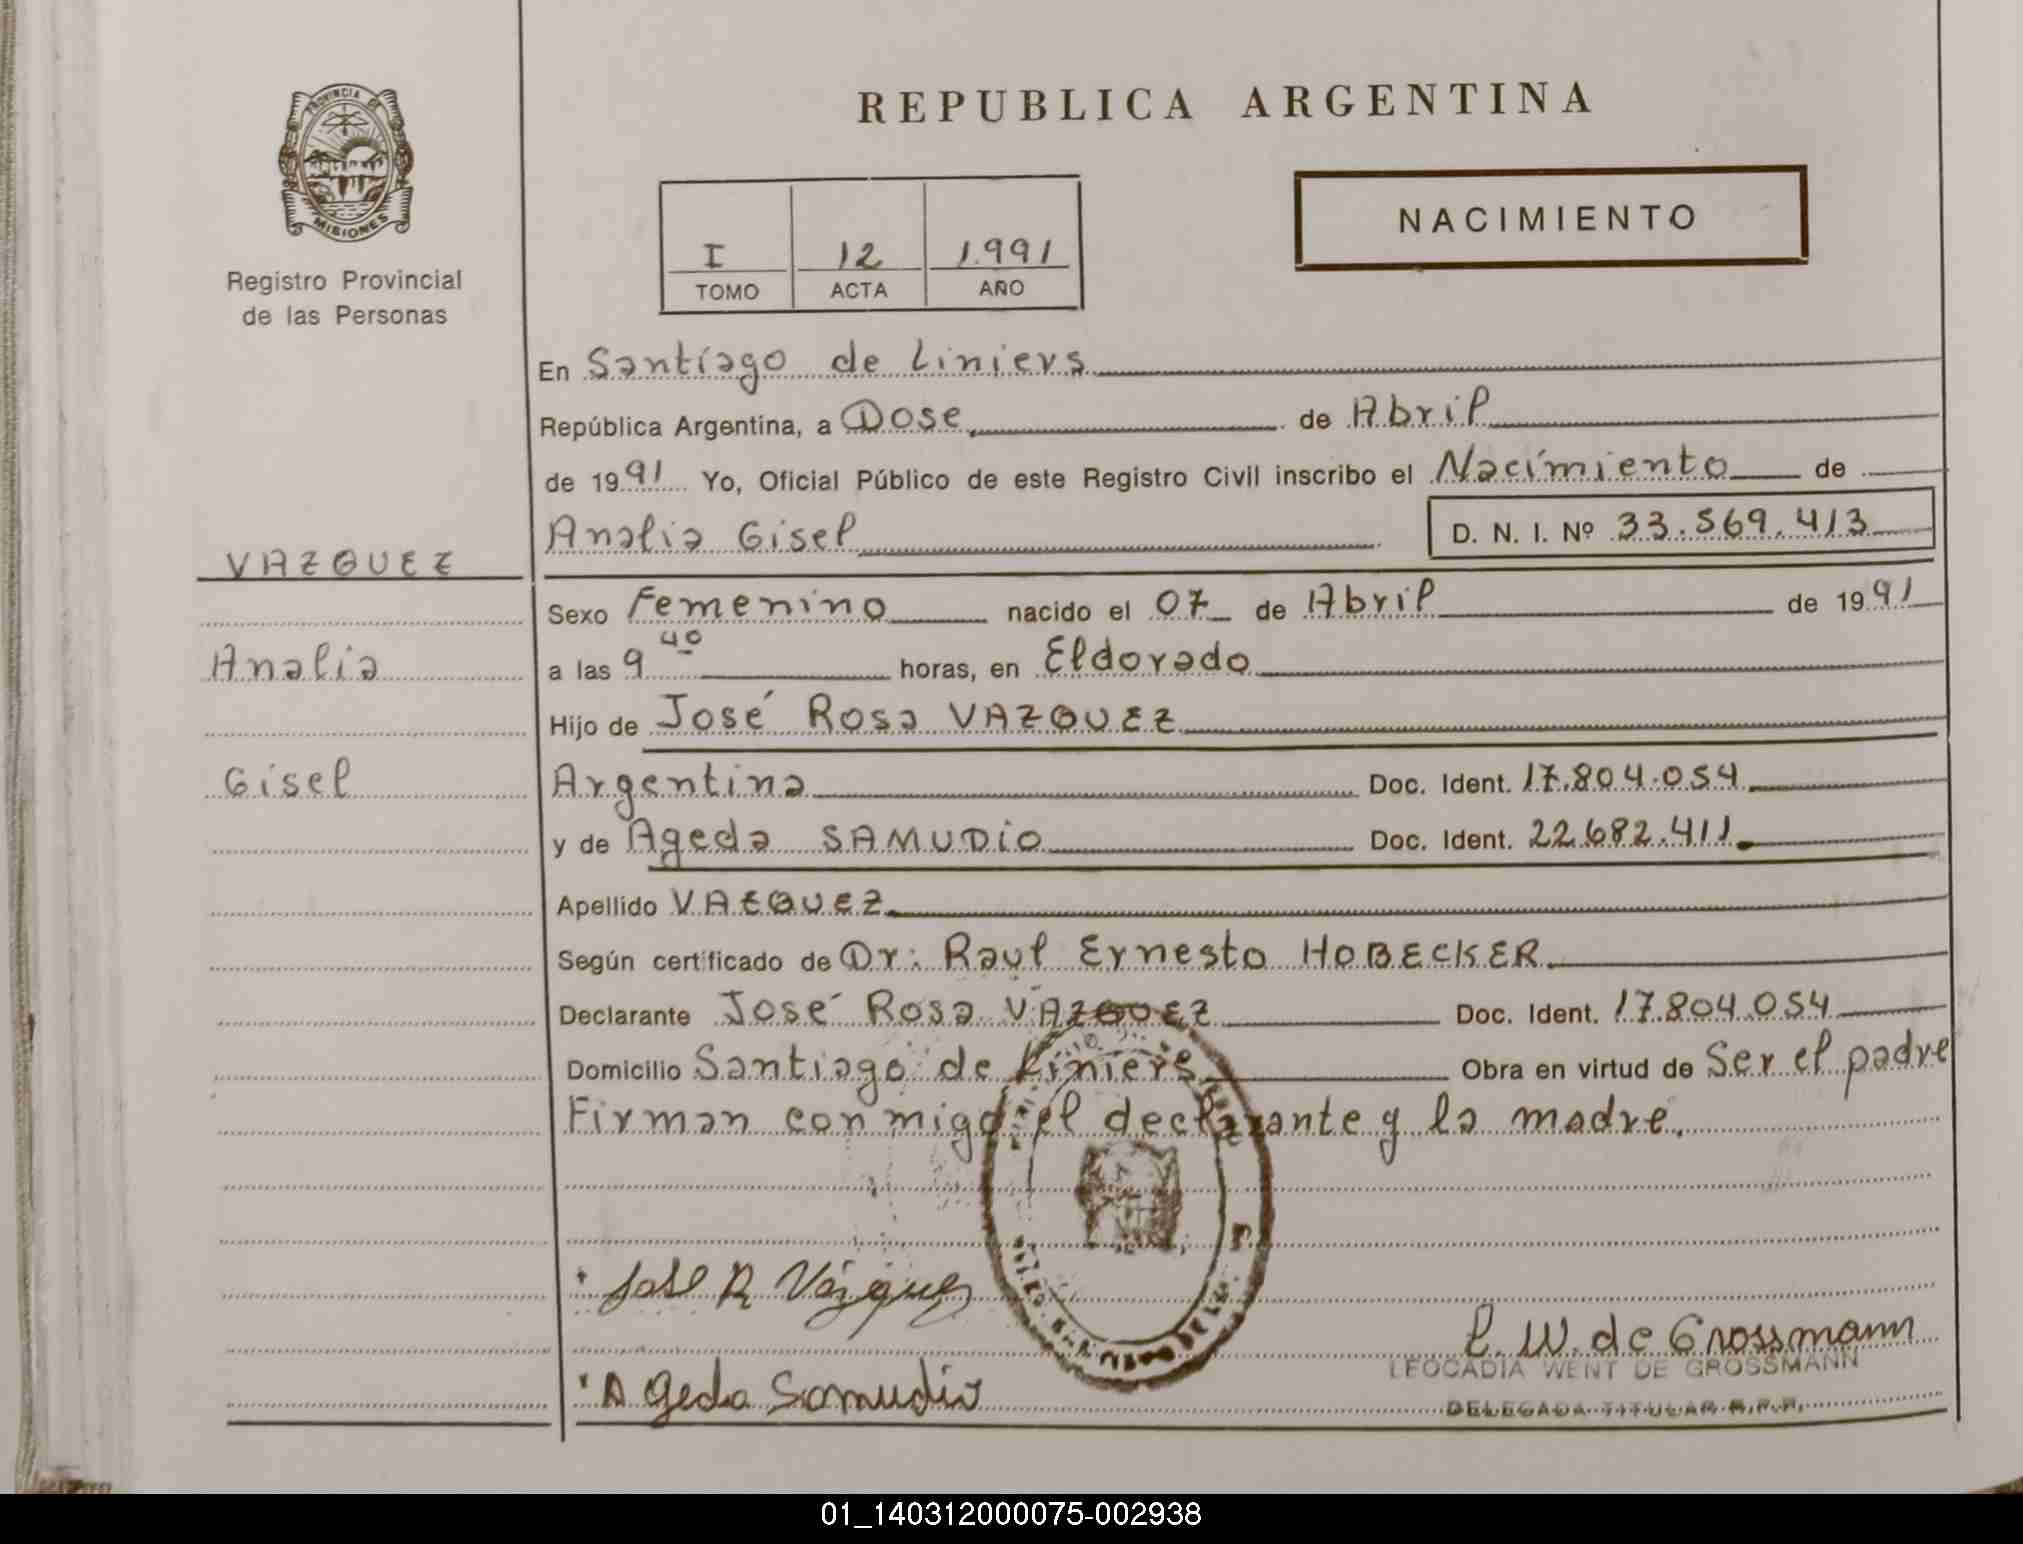 REPUBLICA ARGENTINA
PROVINCIA DE
MISIONES
Registro Provincial
de las Personas
NACIMIENTO
I 12 1.991
TOMO ACTA AÑO
En Santiago de Liniers
República Argentina, a Dose de Abril
de 1991 Yo, Oficial Público de este Registro Civil inscribo el Nacimiento de
Analia Gisel D. N. I. Nº 33.569.413
VAZQUEZ
Analia
Gisel
Sexo Femenino nacido el 07 de Abril de 1991
a las 9 40 horas, en Eldorado
Hijo de José Rosa VAZQUEZ
Argentina Doc. Ident. 17.804.054
y de Ageda SAMUDIO Doc. Ident. 22.682.411
Apellido VAZQUEZ
Según certificado de Dr: Raul Ernesto HOBECKER
Declarante José Rosa VAZQUEZ Doc. Ident. 17.804.054
Domicilio Santiago de Liniers Obra en virtud de Ser el padre
Firman conmigo el declarante y la madre.
José R Vázquez
L. W. de Grossmann
LEOCADIA WENT DE GROSSMANN
Ageda Samudio
DELEGADA TITULAR R.P.P.
01_140312000075-002938